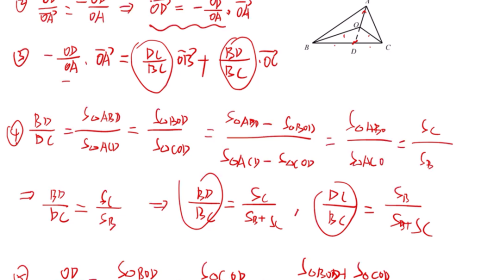 ② OD⃗/OA⃗ = -OD/OA ⇒ OD⃗ = -OD/OA · OA⃗
③ -OD/OA · OA⃗ = DC/BC · OB⃗ + BD/BC · OC⃗
A
O
B D C
④ BD/DC = S△ABD/S△ACD = S△BOD/S△COD = (S△ABD - S△BOD)/(S△ACD - S△COD) = S△ABO/S△ACO = SC/SB
⇒ BD/DC = SC/SB ⇒ BD/BC = SC/(SB+SC) , DC/BC = SB/(SB+SC)
OD = S△BOD S△COD S△BOD + S△COD